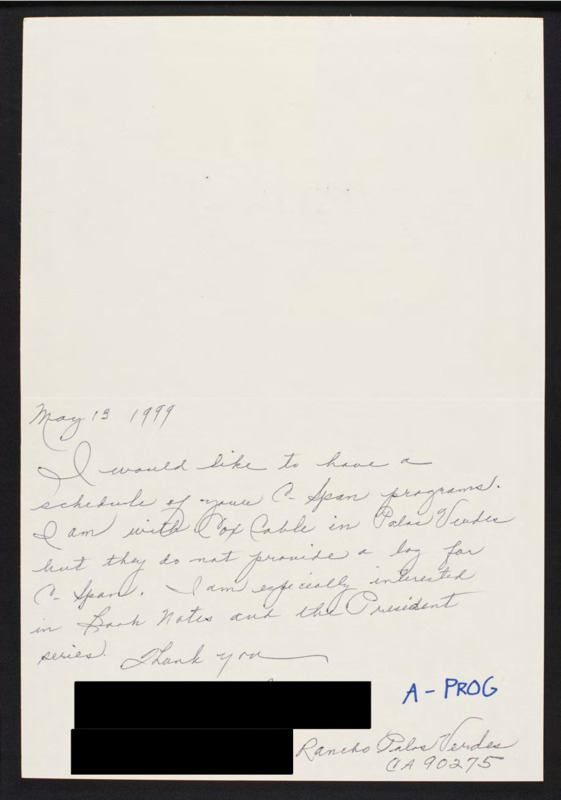 May 13 1999
I would like to have a
schedule of your C-Span programs.
I am with Cox Cable in Palos Verdes
but they do not provide a log for
C-Span. I am especially interested
in Book Notes and the President
series. Thank you
A-PROG
Rancho Palos Verdes
CA 90275